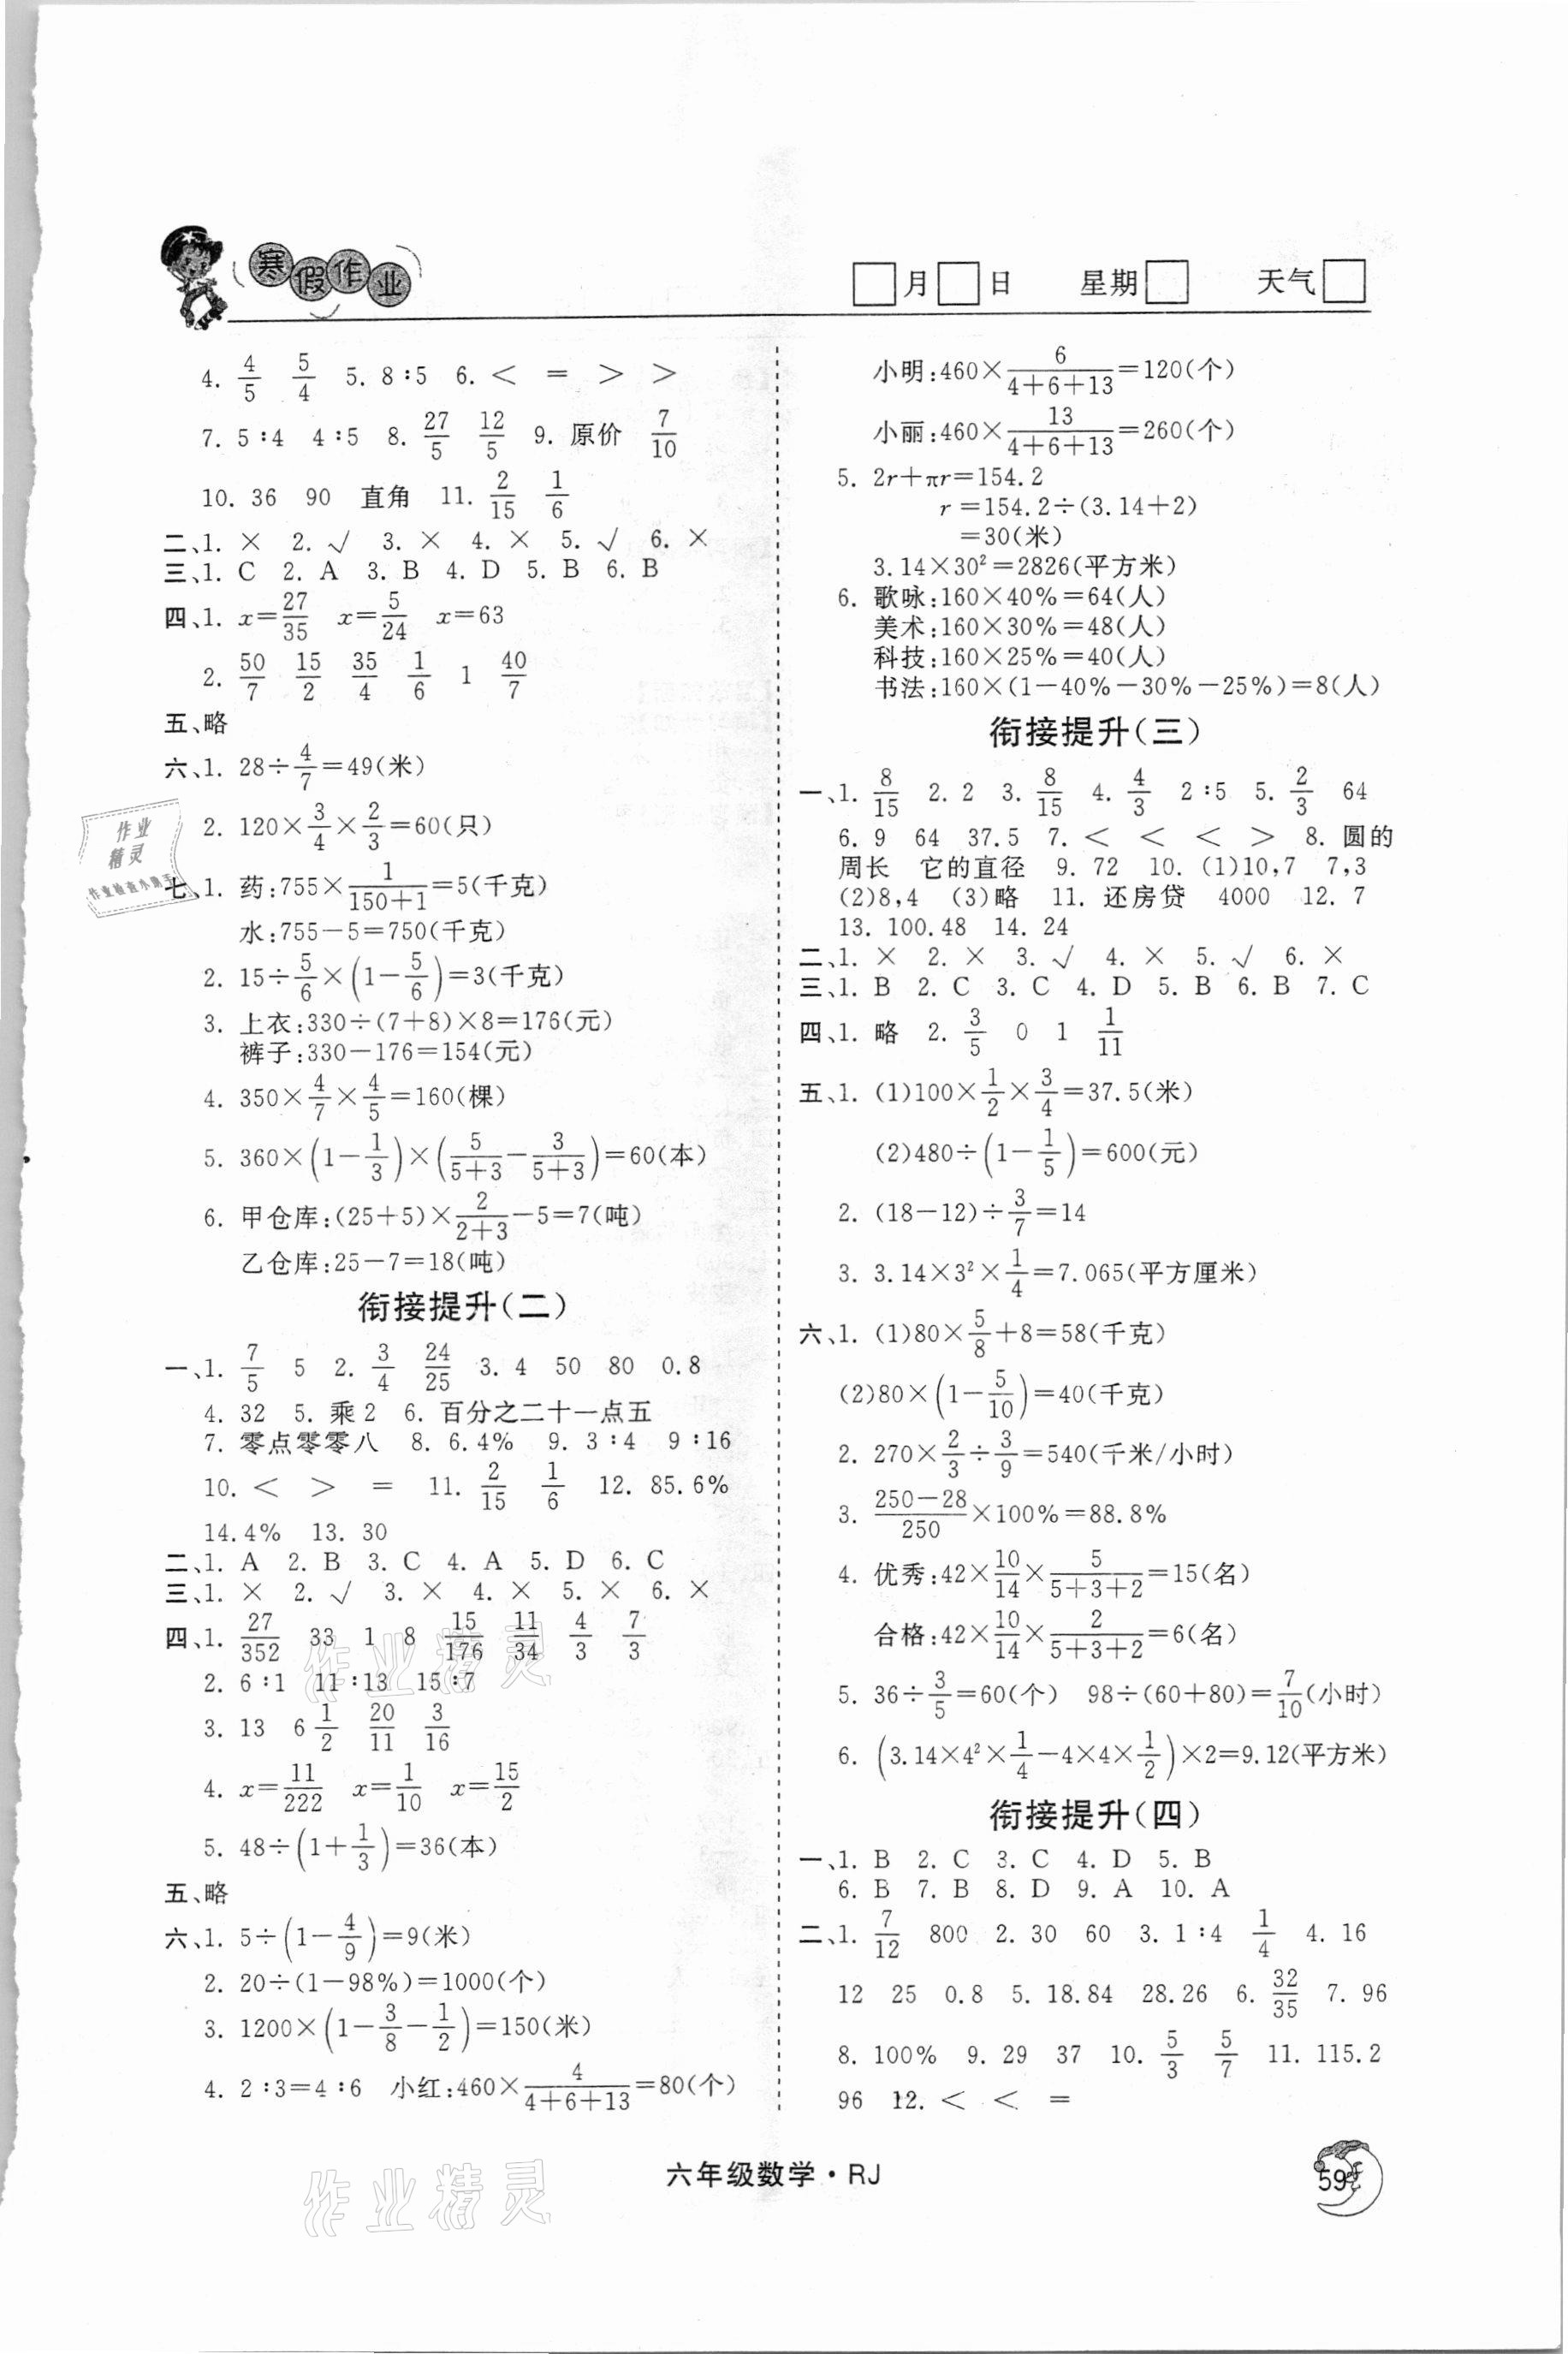 寒假作业
□月□日 星期□ 天气□
4. 4/5 5/4 5. 8∶5 6. < = > >
7. 5∶4 4∶5 8. 27/5 12/5 9. 原价 7/10
10. 36 90 直角 11. 2/15 1/6
二、1. × 2. √ 3. × 4. × 5. √ 6. ×
三、1. C 2. A 3. B 4. D 5. B 6. B
四、1. x=27/35 x=5/24 x=63
2. 50/7 15/2 35/4 1/6 1 40/7
五、略
六、1. 28÷4/7=49(米)
2. 120×3/4×2/3=60(只)
七、1. 药:755×1/(150+1)=5(千克)
水:755-5=750(千克)
2. 15÷5/6×(1-5/6)=3(千克)
3. 上衣:330÷(7+8)×8=176(元)
裤子:330-176=154(元)
4. 350×4/7×4/5=160(棵)
5. 360×(1-1/3)×(5/(5+3)-3/(5+3))=60(本)
6. 甲仓库:(25+5)×2/(2+3)-5=7(吨)
乙仓库:25-7=18(吨)
衔接提升(二)
一、1. 7/5 5 2. 3/4 24/25 3. 4 50 80 0.8
4. 32 5. 乘2 6. 百分之二十一点五
7. 零点零零八 8. 6.4% 9. 3∶4 9∶16
10. < > = 11. 2/15 1/6 12. 85.6%
14.4% 13. 30
二、1. A 2. B 3. C 4. A 5. D 6. C
三、1. × 2. √ 3. × 4. × 5. × 6. ×
四、1. 27/352 33 1 8 15/176 11/34 4/3 7/3
2. 6∶1 11∶13 15∶7
3. 13 6 1/2 20/11 3/16
4. x=11/222 x=1/10 x=15/2
5. 48÷(1+1/3)=36(本)
五、略
六、1. 5÷(1-4/9)=9(米)
2. 20÷(1-98%)=1000(个)
3. 1200×(1-3/8-1/2)=150(米)
4. 2∶3=4∶6 小红:460×4/(4+6+13)=80(个)
小明:460×6/(4+6+13)=120(个)
小丽:460×13/(4+6+13)=260(个)
5. 2r+πr=154.2
r=154.2÷(3.14+2)
=30(米)
3.14×30²=2826(平方米)
6. 歌咏:160×40%=64(人)
美术:160×30%=48(人)
科技:160×25%=40(人)
书法:160×(1-40%-30%-25%)=8(人)
衔接提升(三)
一、1. 8/15 2. 2 3. 8/15 4. 4/3 2∶5 5. 2/3 64
6. 9 64 37.5 7. < < < > 8. 圆的
周长 它的直径 9. 72 10. (1)10,7 7,3
(2)8,4 (3)略 11. 还房贷 4000 12. 7
13. 100.48 14. 24
二、1. × 2. × 3. √ 4. × 5. √ 6. ×
三、1. B 2. C 3. C 4. D 5. B 6. B 7. C
四、1. 略 2. 3/5 0 1 1/11
五、1. (1)100×1/2×3/4=37.5(米)
(2)480÷(1-1/5)=600(元)
2. (18-12)÷3/7=14
3. 3.14×3²×1/4=7.065(平方厘米)
六、1. (1)80×5/8+8=58(千克)
(2)80×(1-5/10)=40(千克)
2. 270×2/3÷3/9=540(千米/小时)
3. (250-28)/250×100%=88.8%
4. 优秀:42×10/14×5/(5+3+2)=15(名)
合格:42×10/14×2/(5+3+2)=6(名)
5. 36÷3/5=60(个) 98÷(60+80)=7/10(小时)
6. (3.14×4²×1/4-4×4×1/2)×2=9.12(平方米)
衔接提升(四)
一、1. B 2. C 3. C 4. D 5. B
6. B 7. B 8. D 9. A 10. A
二、1. 7/12 800 2. 30 60 3. 1∶4 1/4 4. 16
12 25 0.8 5. 18.84 28.26 6. 32/35 7. 96
8. 100% 9. 29 37 10. 5/3 5/7 11. 115.2
96 12. < < =
六年级数学·RJ
59
作业
精灵
作业精灵
作业精灵